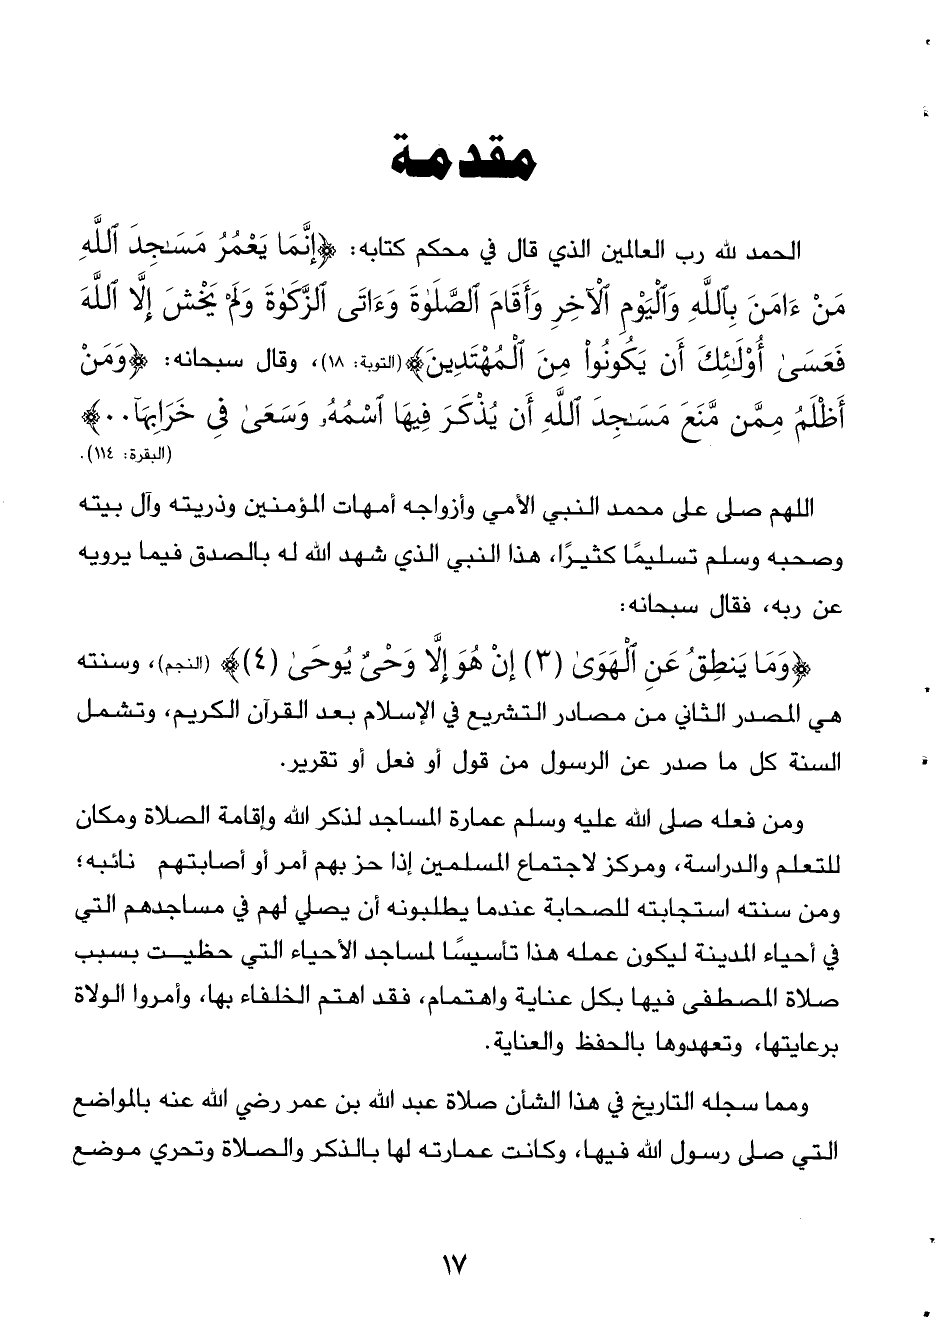 مقدمة
الحمد لله رب العالمين الذي قال في محكم كتابه: ﴿إِنَّمَا يَعْمُرُ مَسَـٰجِدَ ٱللَّهِ
مَنْ ءَامَنَ بِٱللَّهِ وَٱلْيَوْمِ ٱلْآخِرِ وَأَقَامَ ٱلصَّلَوٰةَ وَءَاتَى ٱلزَّكَوٰةَ وَلَمْ يَخْشَ إِلَّا ٱللَّهَ
فَعَسَىٰ أُوْلَـٰئِكَ أَن يَكُونُواْ مِنَ ٱلْمُهْتَدِينَ﴾ (التوبة: ١٨)، وقال سبحانه: ﴿وَمَنْ
أَظْلَمُ مِمَّن مَّنَعَ مَسَـٰجِدَ ٱللَّهِ أَن يُذْكَرَ فِيهَا ٱسْمُهُۥ وَسَعَىٰ فِى خَرَابِهَآ..﴾
(البقرة: ١١٤).
اللهم صلى على محمد النبي الأمي وأزواجه أمهات المؤمنين وذريته وآل بيته
وصحبه وسلم تسليمًا كثيرًا، هذا النبي الذي شهد الله له بالصدق فيما يرويه
عن ربه، فقال سبحانه:
﴿وَمَا يَنطِقُ عَنِ ٱلْهَوَىٰ (٣) إِنْ هُوَ إِلَّا وَحْىٌ يُوحَىٰ (٤)﴾ (النجم)، وسنته
هي المصدر الثاني من مصادر التشريع في الإسلام بعد القرآن الكريم، وتشمل
السنة كل ما صدر عن الرسول من قول أو فعل أو تقرير.
ومن فعله صلى الله عليه وسلم عمارة المساجد لذكر الله وإقامة الصلاة ومكان
للتعلم والدراسة، ومركز لاجتماع المسلمين إذا حز بهم أمر أو أصابتهم نائبه؛
ومن سنته استجابته للصحابة عندما يطلبونه أن يصلي لهم في مساجدهم التي
في أحياء المدينة ليكون عمله هذا تأسيسًا لمساجد الأحياء التي حظيت بسبب
صلاة المصطفى فيها بكل عناية واهتمام، فقد اهتم الخلفاء بها، وأمروا الولاة
برعايتها، وتعهدوها بالحفظ والعناية.
ومما سجله التاريخ في هذا الشأن صلاة عبد الله بن عمر رضي الله عنه بالمواضع
التي صلى رسول الله فيها، وكانت عمارته لها بالذكر والصلاة وتحري موضع
١٧